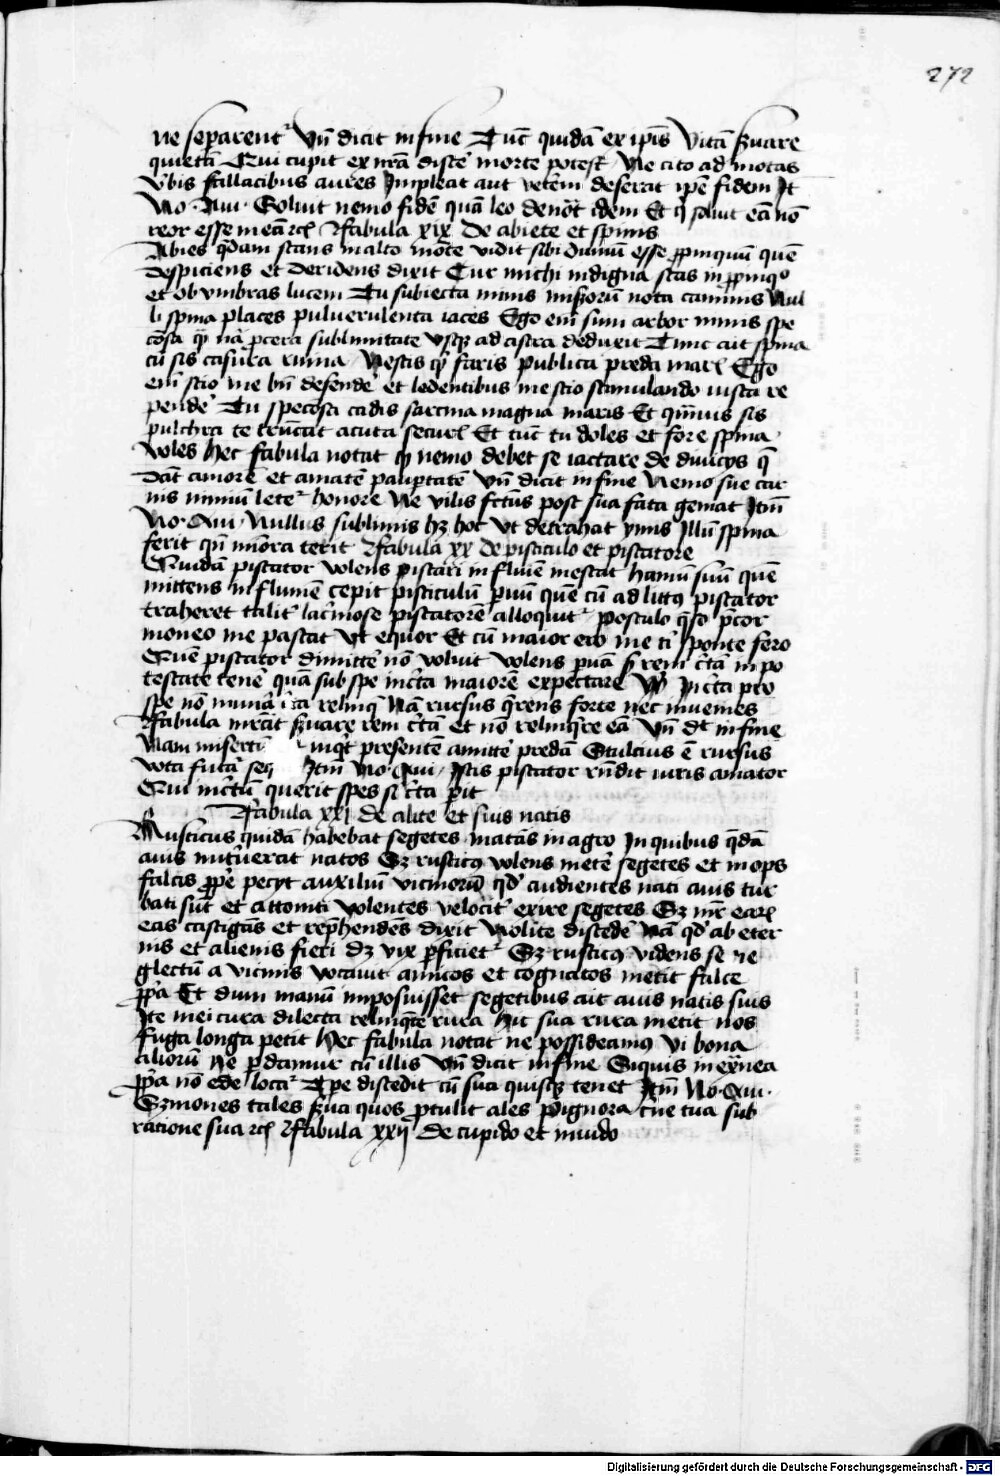 272
ne separent᷑ Vn̄ dicit in fine Tūc quidā ex ip̄is Vitā ẜuare
quietā Qui cupit ex nr̄a disce᷑ morte potest᷑ Ne cito ad motas
V᷑bis fallacibus aures Impleat aut vete᷑m deserat ip̄e fidem It̄
No. Aui. Soluit nemo fidē quā leo denōt idem Et q̄ soluit eā nō
reor esse meā rc̄ Fabula xix De abiete et spinis
Abies q̄dam stans in alto mōte vidit sibi dumū esse ꝓpinquū quē
despiciens et deridens dixit Cur michi indigna stas in ꝓpinqͦ
et ob vmbras lucem Tu subiecta nimis mis᷑orū nota caminis Nul
li spina places puluerulenta iaces Ego em̄ sum arbor nimis spe
cōsa qꝫ na᷑ ꝓcera sublimitate vsqꝫ ad astra deduxit Tunc ait spina
cū sis casura ruina Nestis qꝫ faris publica preda mar᷑ Ego
em̄ scio me bn̄ defende᷑ et ledentibus me scio stimulando iusta re
pende᷑ Tu speciosa cadis sarcina magna maris Et qm̄uis sis
pulchra te trūcat acuta secur᷑ Et tūc tu doles et fore spina
voles Hec fabula notat qꝫ nemo debet se iactare de diuicijs q̄
dāt amorē et amatē paup᷑tatē Vn̄ dicit in fine Nemo sue car
nis nimiū lete᷑ honore Ne vilis fc̄tus post sua fata gemat Itm̄
No. Aui. Nullus sublimis hꝫ hoc vt detrahat ymis Illū spina
ferit qn̄ mīora terit Fabula xx De pisciculo et piscatore
Quidā piscator volens piscari in fluīe inescat hamū suū quē
mittens in flumē cepit pisciculū ꝑuū quē cū ad littꝰ piscator
traheret talit᷑ lac᷑mose piscatorē alloquit᷑ Postulo q̄so p̄cor
moneo me pascat vt equor Et cū maior ero me ti᷑ sponte fero
Quē piscator dimitte᷑ nō voluit volens ꝑuā ẜ rem c᷑tā in po
testate tene᷑ quā sub spe inc᷑ta maiorē expectare
spe nō relinq̄ Nā rursus q̄rens forte nec inuenies
Fabula ẜuare rem c᷑tā et nō relinq̄re eā Vn̄ dc̄ in fine
Nam miserū inq̄t presentē amitte᷑ predā Stulcius ē rursus
vota futa᷑ seq Itm̄ No. Aui. Istis piscator rn̄dit iuris amator
Qui inc᷑tū querit spes si c᷑ta ꝑit
Fabula xxj De alite et suis natis
Rusticus quidā habebat segetes matās in agro In quibus q̄dā
auis nut᷑uerat natos Sꝫ rusticꝰ volens mete᷑ segetes et in ops
falcis ꝓpe᷑ pecijt auxiliū vicinorū qd᷑ audientes nati auis tur
bati sūt et attoniti volentes velocit᷑ exire segetes Sꝫ mr᷑ ear᷑
eas castigans et rep᷑hendēs dixit Nolite discede᷑ Nā qd᷑ ab exter
nis et alienis fieri dꝫ vix ꝑficiet᷑ Sꝫ rusticꝰ videns se ne
glectū a vicinis vocauit amicos et cognatos metit falce
ꝓp̄a Et dum manū imposuisset segetibus ait auis natis suis
Ite mei cura dilecta relinq̄te rura Hic sua rura metit nos
fuga longa petit Hec fabula notat ne possideamꝰ vi bona
alioruꝫ ne ꝑdamur cū illis Vn̄ dicit in fine Siquis in ex̄nea
ꝓp̄a nō ede᷑ loca᷑ Tpe discedit cū sua quisqꝫ tenet Itm̄ No. Aui.
S᷑mones tales ẜua quos ꝓtulit ales Pignora tue tua sub
ratione sua rc̄ Fabula xxij De cupido et inuido
Digitalisierung gefördert durch die Deutsche Forschungsgemeinschaft - DFG